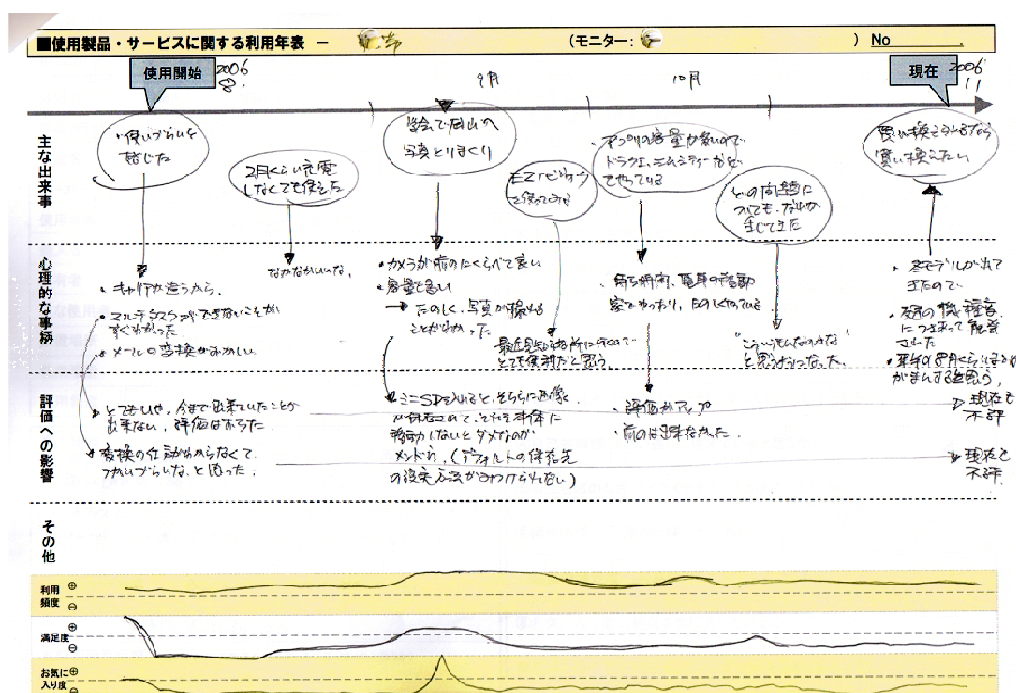 ■使用製品・サービスに関する利用年表 －
(モニター:
) No
使用開始
2006
8.
9月
10月
現在
2006
11
主な出来事
使いづらいを
感じた
2月くらい充電
しなくても使えた
学会で岡山へ
写真とりまくり
EZナビウォーク
を使っている
アプリの容量が多いので
ドラクエ、
やっている
どの問題に
ついても、なれが
生じてきた
買い換えられるなら
買い換えたい
心理的な事柄
・キャリアが違うから。
・マルチタスクができないことが
すぐわかった
・メールの変換がおかしい
なかなかいいな。
・カメラが前のにくらべて良い
・容量も多い
→ たのしく、写真が撮れる
ことがわかった
最近知らない場所に行くので
とても便利だと思う。
・待ち時間、電車の移動
家でやったり、たのしくやっている
"こういうもんなのかな"
と思うようになった。
・冬モデルが出て
きたので
・来年の8月くらいまで
がまんすると思う。
評価への影響
・とてもいや、今まで出来ていたことが
出来ない、評価は落ちた
・変換の仕方がわからなくて
つかいづらいな、と思った。
・ミニSDを入れると、そちらに画像
が保存されて、それを本体に
移動しないとダメなのが
メンドウ。(デフォルトの保存先
の設定方法がみつけられない)
・評価がアップ
・前のは出来なかった。
現在も
不評
現在も
不評
その他
利用
頻度
⊕
⊖
満足度
⊕
⊖
お気に
入り度
⊕
⊖